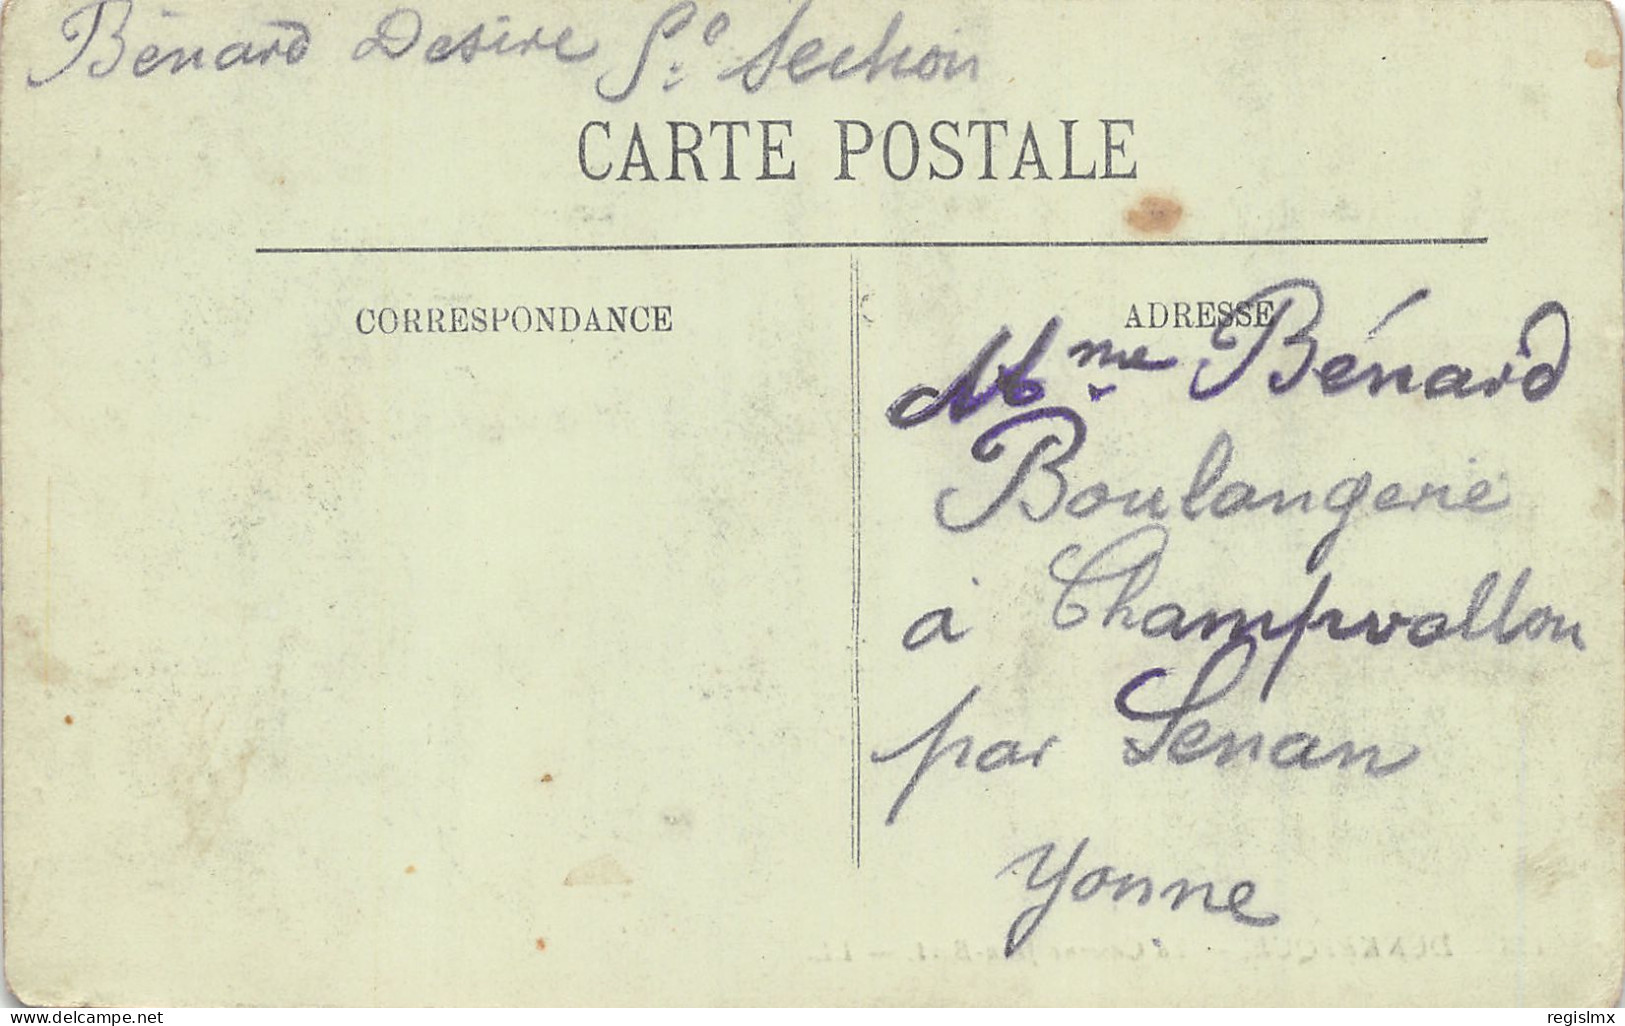 Bénard Desire S.° Section
CARTE POSTALE
CORRESPONDANCE
ADRESSE
Mme Bénard
Boulangerie
à Champvallon
par Senan
Yonne
www.delcampe.net
regislmx